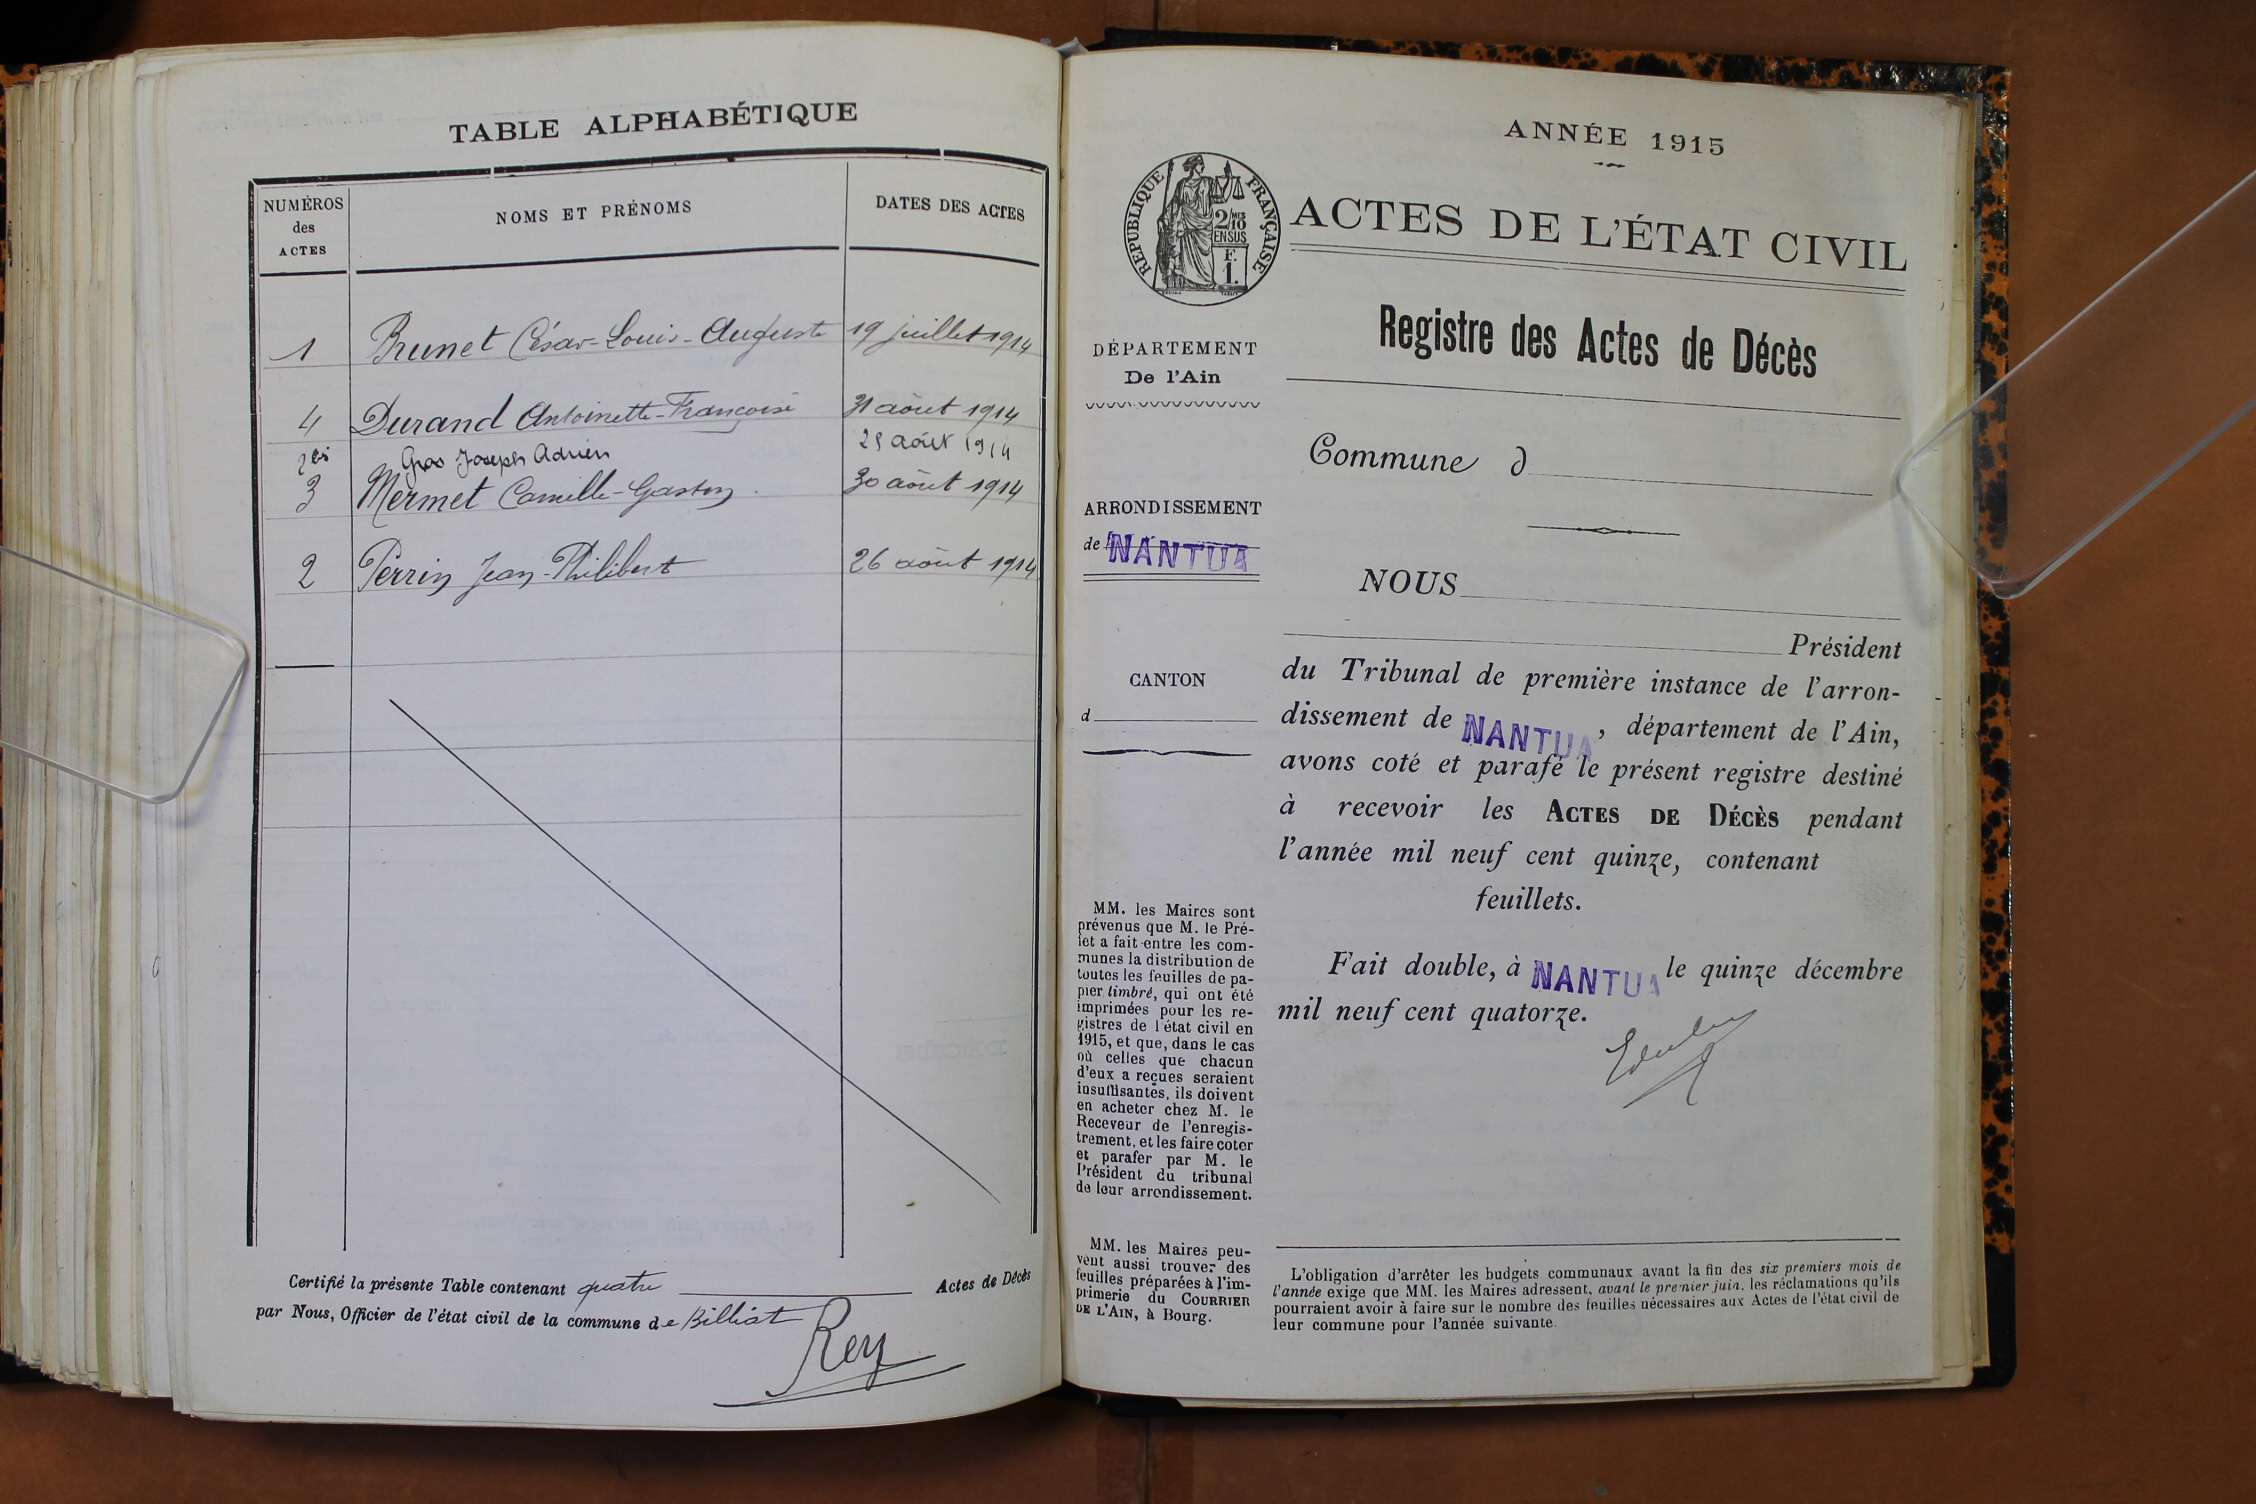 TABLE ALPHABÉTIQUE
NUMÉROS des ACTES
NOMS ET PRÉNOMS
DATES DES ACTES
1 Brunet César-Louis-Auguste 19 juillet 1914
4 Durand Antoinette-Françoise 31 août 1914
2bis Gros Joseph Adrien août 1914
3 Mermet Camille-Gaston 30 août 1914
2 Perrin Jean-Philibert 26 août 1914
Certifié la présente Table contenant quatre Actes de Décès
par Nous, Officier de l'état civil de la commune de Billiat
Rey
ANNÉE 1915
RÉPUBLIQUE FRANÇAISE
2/10
EN SUS
F.
1.
ACTES DE L'ÉTAT CIVIL
Registre des Actes de Décès
DÉPARTEMENT
De l'Ain
Commune d
ARRONDISSEMENT
de NANTUA
NOUS
Président
CANTON
d
du Tribunal de première instance de l'arron-
dissement de NANTUA, département de l'Ain,
avons coté et parafé le présent registre destiné
à recevoir les ACTES DE DÉCÈS pendant
l'année mil neuf cent quinze, contenant
feuillets.
Fait double, à NANTUA le quinze décembre
mil neuf cent quatorze.
MM. les Maires sont
prévenus que M. le Pré-
fet a fait entre les com-
munes la distribution de
toutes les feuilles de pa-
pier timbré, qui ont été
imprimées pour les re-
gistres de l'état civil en
1915, et que, dans le cas
où celles que chacun
d'eux a reçues seraient
insuffisantes, ils doivent
en acheter chez M. le
Receveur de l'enregis-
trement, et les faire coter
et parafer par M. le
Président du tribunal
de leur arrondissement.
MM. les Maires peu-
vent aussi trouver des
feuilles préparées à l'im-
primerie du COURRIER
DE L'AIN, à Bourg.
L'obligation d'arrêter les budgets communaux avant la fin des six premiers mois de
l'année exige que MM. les Maires adressent, avant le premier juin, les réclamations qu'ils
pourraient avoir à faire sur le nombre des feuilles nécessaires aux Actes de l'état civil de
leur commune pour l'année suivante.